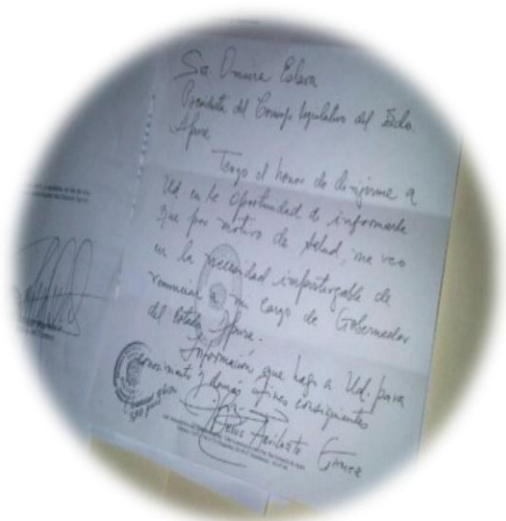 Sra. Omaira Eslava
Presidenta del Consejo Legislativo del Estado
Apure
Tengo el honor de dirigirme a
Ud en la Oportunidad de informarle
que por motivo de salud, me veo
en la necesidad impostergable de
renunciar a mi cargo de Gobernador
del Estado Apure.
Información que hago a Ud. para
conocimiento y demás fines consiguientes
Jesús Aguilarte Gámez